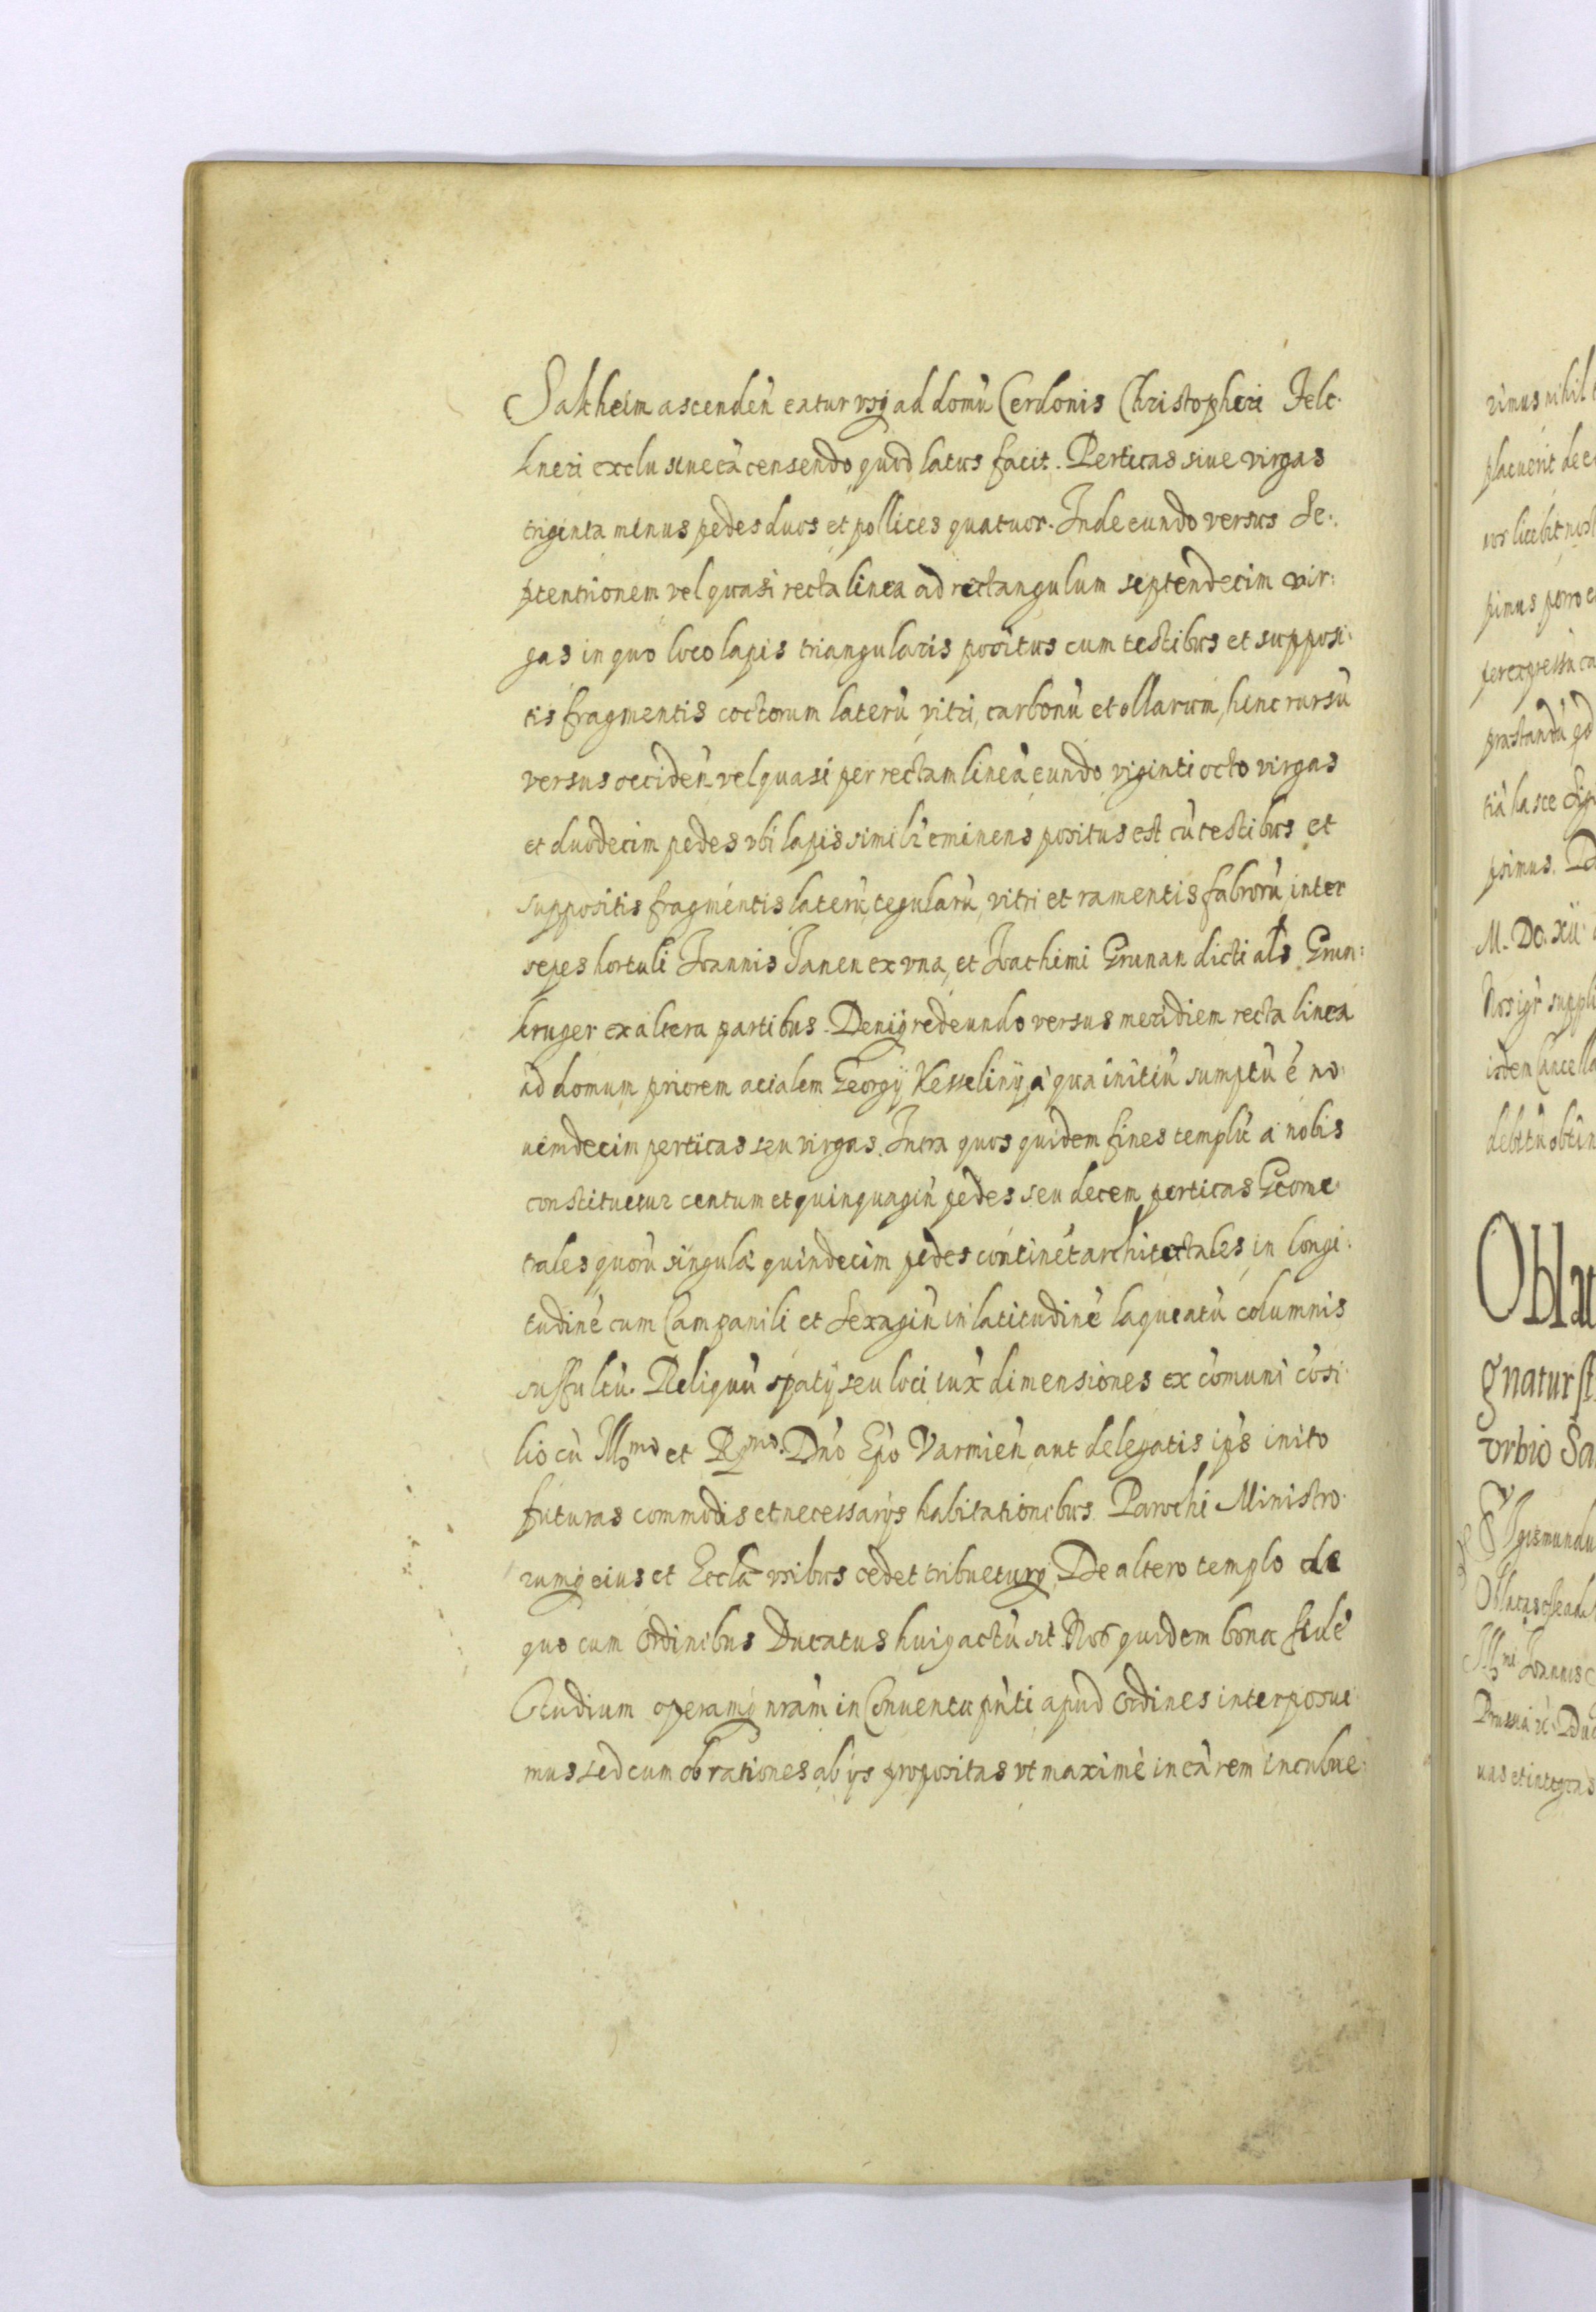 Sakheim ascendeǹ eatur usq ad domù Cerdonis Christopheri Jelc-
kneri exclusiue eà censendo quod latus facit. Perticas siue virgas
triginta minus pedes duos et pollices quatuor. Inde eundo versus Se-
ptentrionem vel quasi recta linea ad rectangulum septendecim vir:
gas in quo loco lapis triangularis positus cum testibus et supposi:
tis fragmentis coctorum laterù vitri, carbonù et ollarum, hinc rursù
versus occideǹ vel quasi per rectam lineà eundo viginti octo virgas
et duodecim pedes vbi lapis simil'r eminens positus est cù testibus et
suppositis fragmentis laterù, tegularù, vitri et ramentis fabrorù, inter
sepes hortuli Joannis Janen ex vna, et Joachimi Grunan dicti als Grun:
kruger ex altera partibus. Deniq redeundo versus meridiem recta linea
ad domum priorem acialem Georgÿ Kesselinÿ, à qua initiù sumptù è no:
uemdecim perticas seu virgas. Intra quos quidem fines templù à nobis
constituetur centum et quinquagiǹ pedes seu decem perticas Geome:
trales quorù singulà quindecim pedes continèt architectales, in longi:
tudinè cum Campanili et Sexagiǹ in latitudinè laqueatù columnis
suffultù. Reliquù spatÿ seu loci iux dimensiones ex còmuni còsi
lio cù Illmo et Rmo. Dǹo Epò Varmieǹ aut delegatis ip̀s inito
futuras commodis et necessarÿs habitationibus Parochi Ministro
rumq eius et Eccl̀a vsibus cedet tribueturq. De altero templo de
quo cum Ordinibus Ducatus huiq actù sit. Nos quidem bona fidè
Studium operamq nràm in Conuentu pǹti apud Ordines interposui
mus sed cum ob rationes ab ÿs propositas vt maximè in eà rem incubue:
rimus nihil
placuerit de
uos licebit nost
pimus porro e
per expressù ca
præstandù qd
tià hasce
psimus. D
M. DC. XII
Nos igr suppli
isdem Cancella
debitù obtin
Oblat
gnatur st
vrbio Sa
Sigismundu
Oblatas esse ad
Illmi Joannis
Prussià
uas et integras